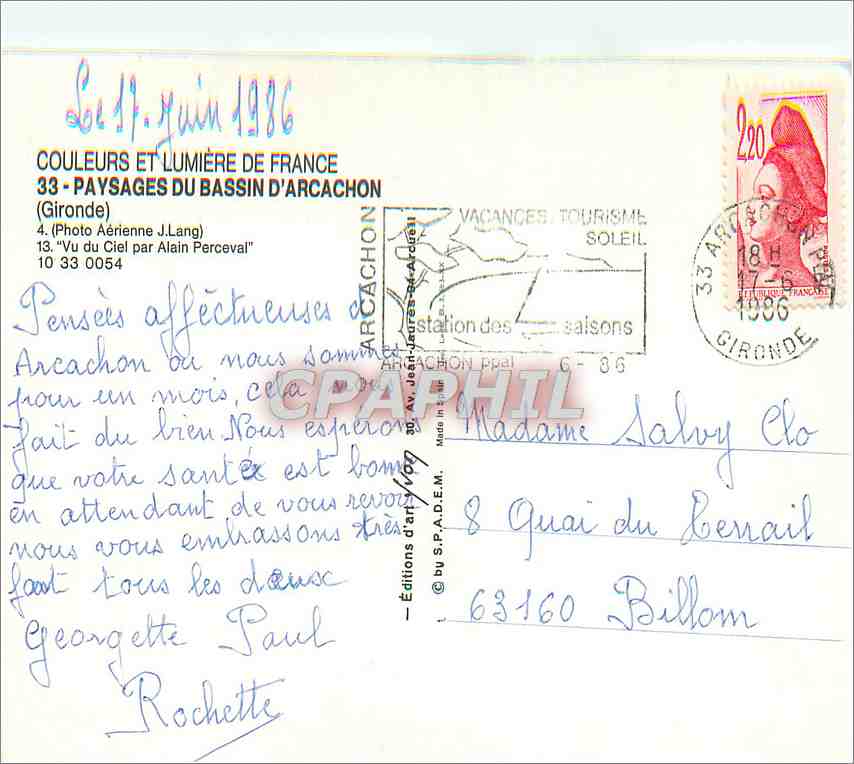 Le 17. Juin 1986
COULEURS ET LUMIÈRE DE FRANCE
33 - PAYSAGES DU BASSIN D'ARCACHON
(Gironde)
4. (Photo Aérienne J.Lang)
13. "Vu du Ciel par Alain Perceval"
10 33 0054
Pensées affectueuses d'
Arcachon ou nous sommes
pour un mois, cela nous
fait du bien. Nous espérons
que votre santé est bonne
en attendant de vous revoir
nous vous embrassons très
fort tous les deux
Georgette Paul
Rochette
ARCACHON
VACANCES. TOURISME
SOLEIL
station des 4 saisons
ARCACHON ppal 6 - 86
2,20
REPUBLIQUE FRANÇAISE
33 ARCACHON PPAL
18 H
17-6
1986
GIRONDE
— Éditions d'art yvon 30, Av. Jean-Jaurès-94-Arcueil
© by S.P.A.D.E.M. Made in Spain
CPAPHIL
Madame Salvy Clo
8 Quai du Terrail
63160 Billom